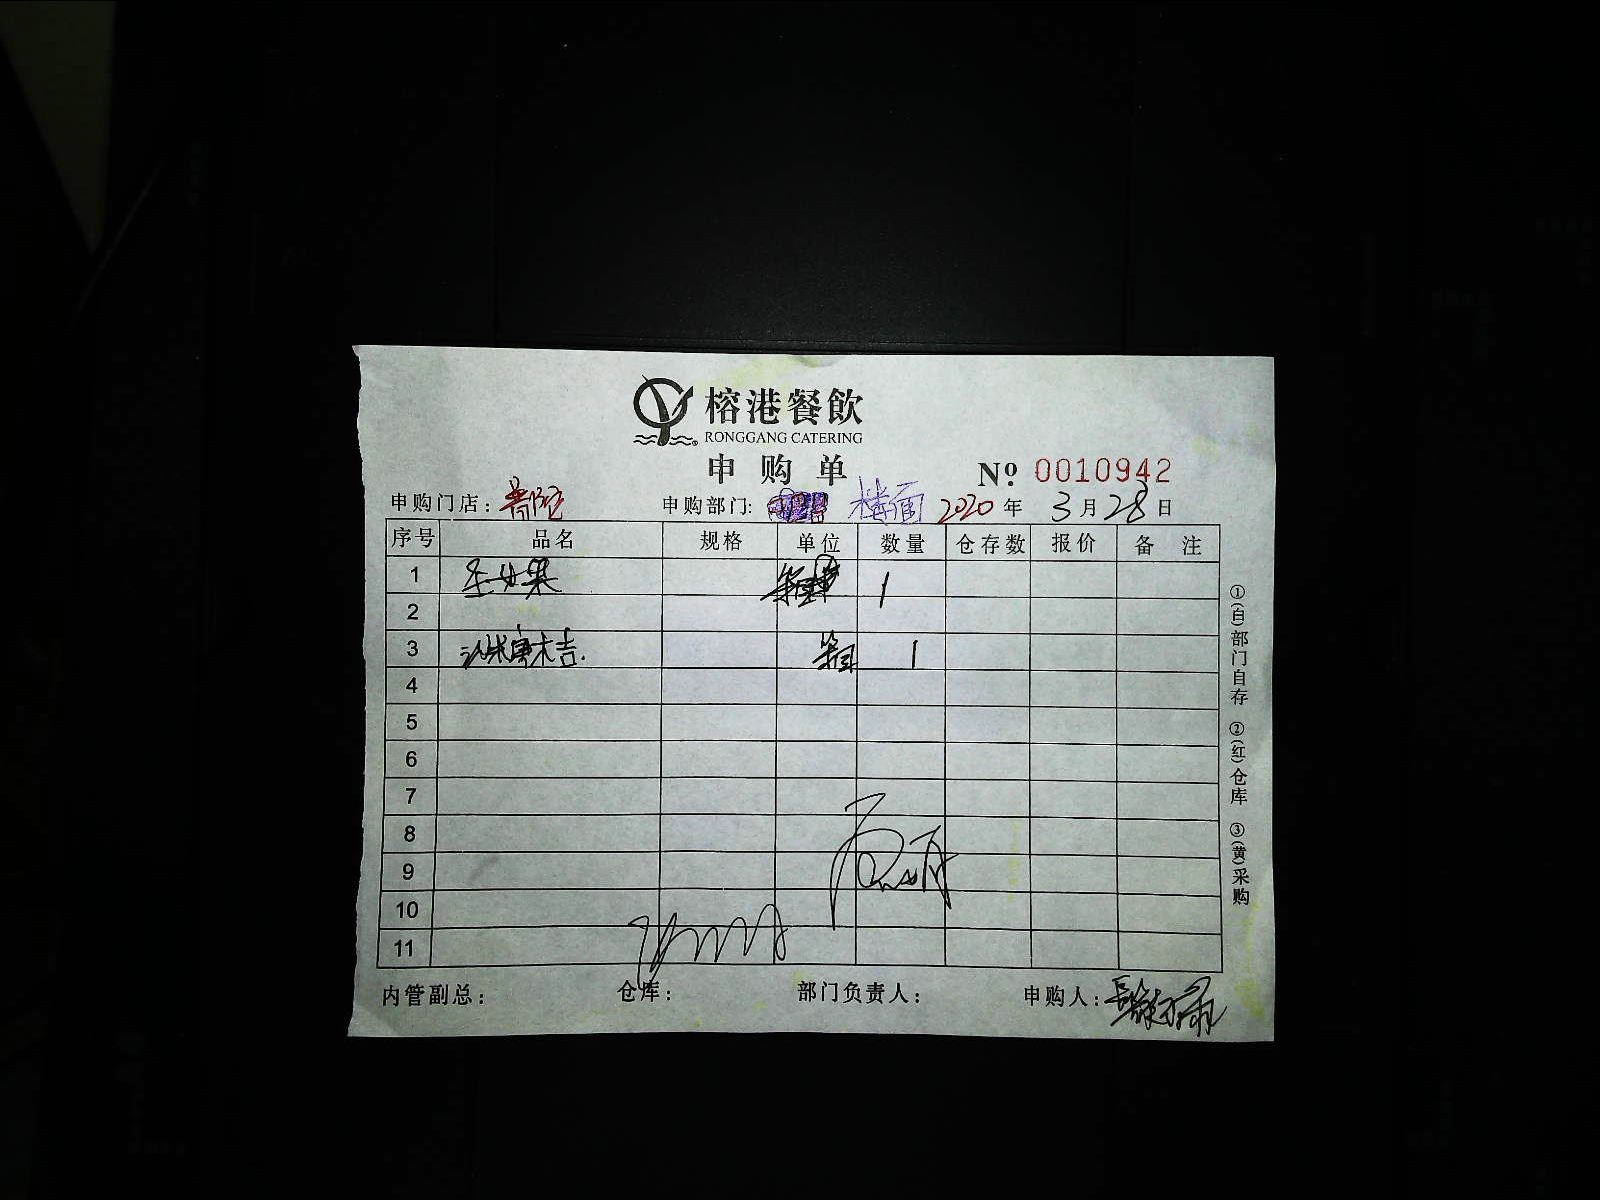 榕港餐飲
RONGGANG CATERING
申购单
№ 0010942
申购门店：普陀 申购部门： 楼面 2020年3月28日
序号 品名 规格 单位 数量 仓存数 报价 备注
1 圣女果 1
2
3 箱 1
4
5
6
7
8
9
10
11
内管副总： 仓库： 部门负责人： 申购人：
①(白)部门自存 ②(红)仓库 ③(黄)采购